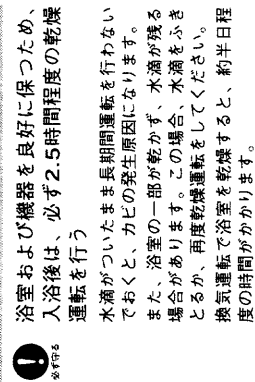 浴室および機器を良好に保つため、
入浴後は、必ず2.5時間程度の乾燥
運転を行う
必ず守る
水滴がついたまま長期間運転を行わない
でおくと、カビの発生原因になります。
また、浴室の一部が乾かず、水滴が残る
場合があります。この場合、水滴をふき
とるか、再度乾燥運転をしてください。
換気運転で浴室を乾燥すると、約半日程
度の時間がかかります。